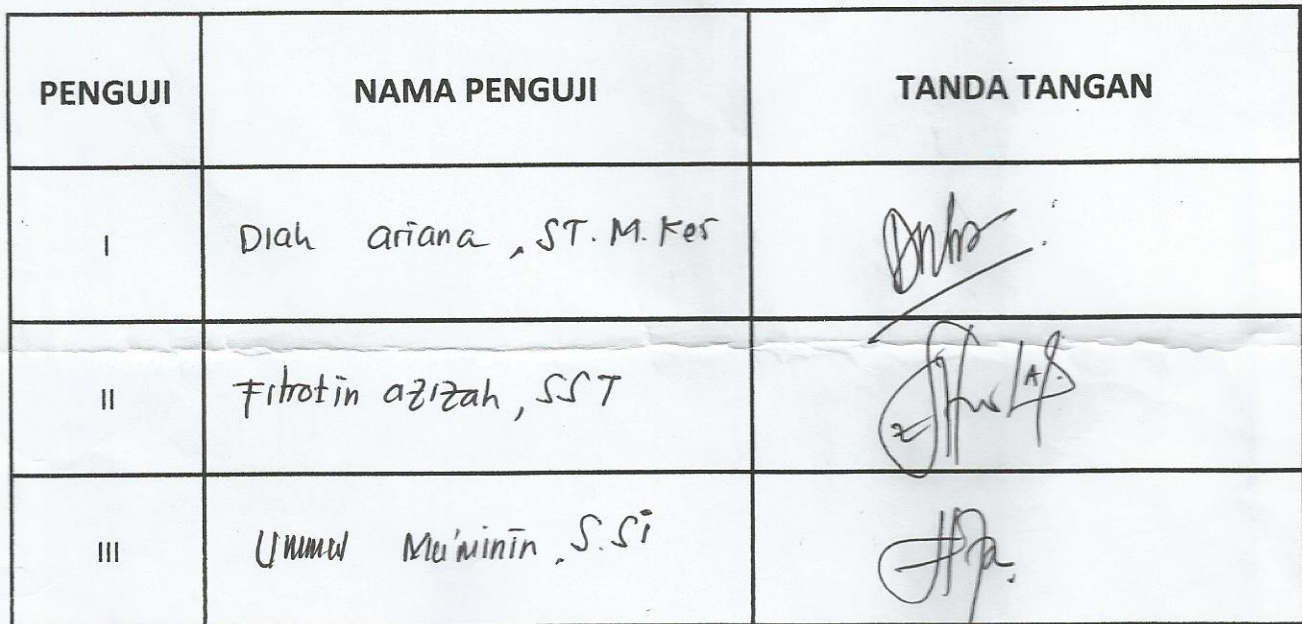 PENGUJI NAMA PENGUJI TANDA TANGAN
I Diah ariana, ST. M. Kes
II Fitrotin azizah, SST
III Ummul Mu'minin, S.Si